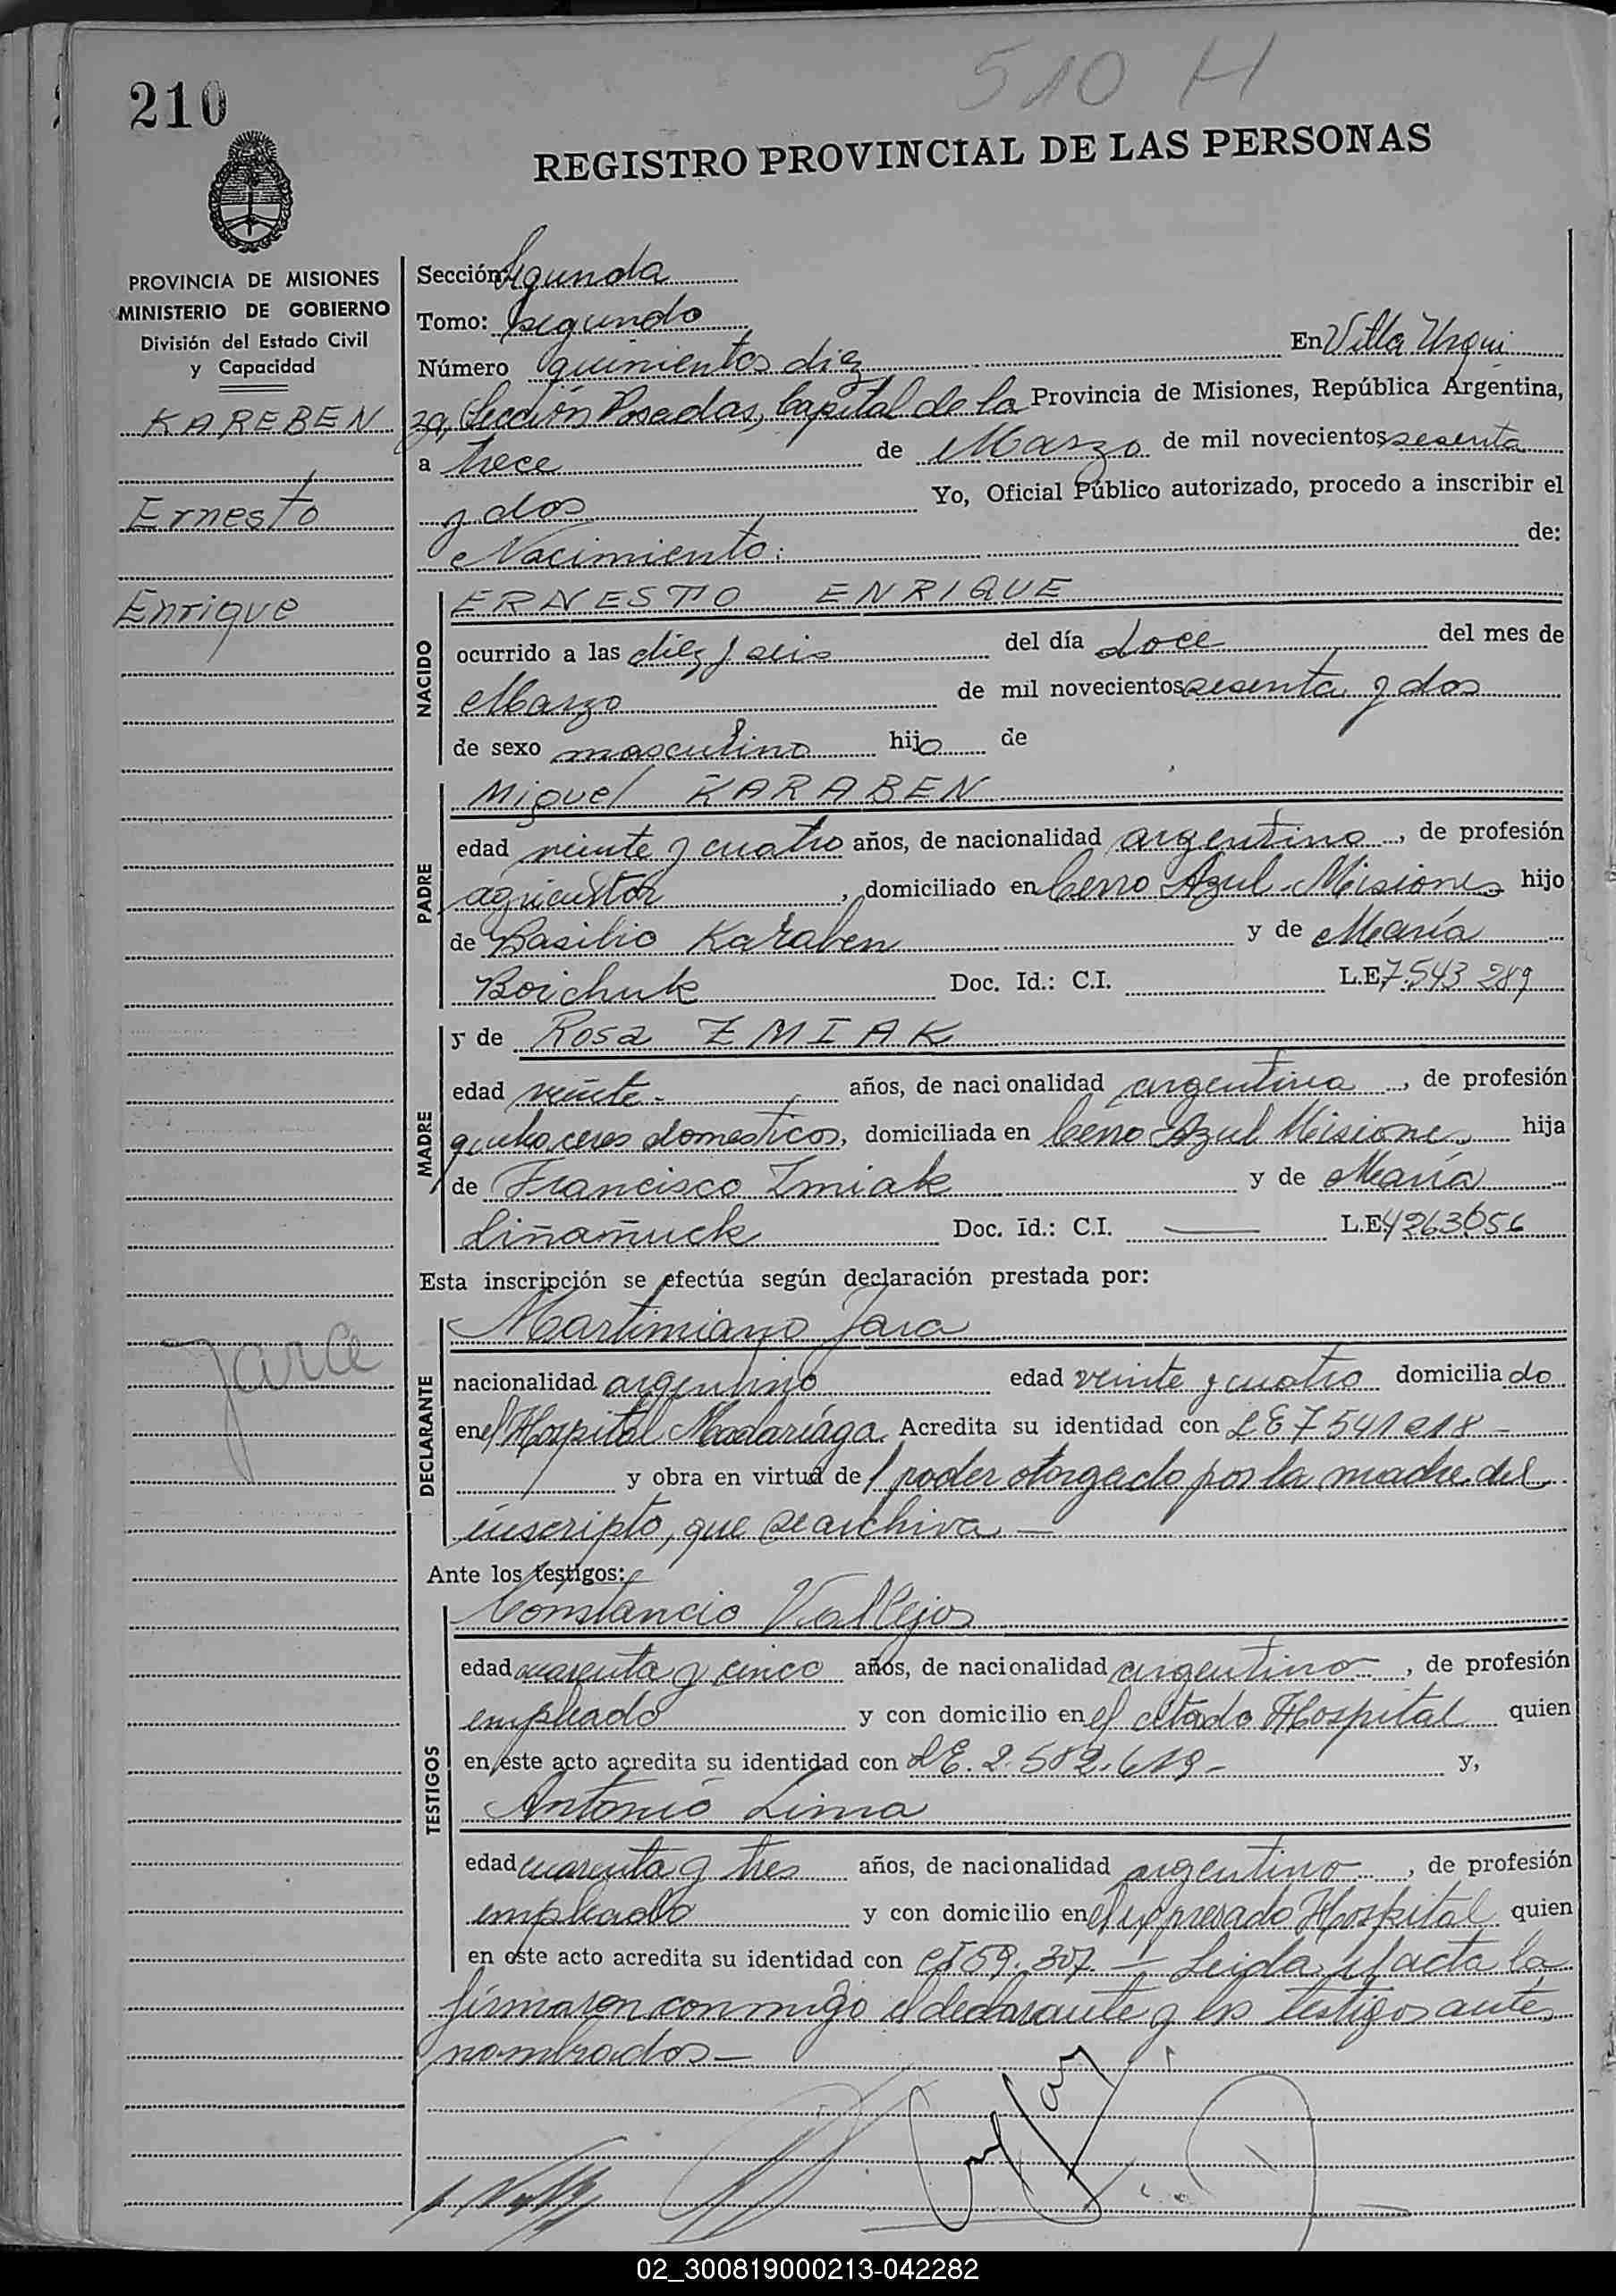 510 H
210
REGISTRO PROVINCIAL DE LAS PERSONAS
PROVINCIA DE MISIONES
MINISTERIO DE GOBIERNO
División del Estado Civil
y Capacidad
KAREBEN
Ernesto
Enrique
Jara
Sección: Segunda
Tomo: segundo
Número quinientos diez En Villa Urqui
za, Sección Posadas, Capital de la Provincia de Misiones, República Argentina,
a trece de Marzo de mil novecientos sesenta
y dos Yo, Oficial Público autorizado, procedo a inscribir el
Nacimiento: de:
NACIDO
ERNESTO ENRIQUE
ocurrido a las diez y seis del día doce del mes de
Marzo de mil novecientos sesenta y dos
de sexo masculino hijo de
PADRE
Miguel KARABEN
edad veinte y cuatro años, de nacionalidad argentino, de profesión
agricultor, domiciliado en Cerro Azul-Misiones hijo
de Basilio Karaben y de María
Boichuk Doc. Id.: C.I. L.E. 7.543 289
MADRE
y de Rosa ZMIAK
edad veinte- años, de nacionalidad argentina, de profesión
quehaceres domesticos, domiciliada en Cerro Azul Misiones hija
de Francisco Zmiak y de María
Liñañuck Doc. Id.: C.I. — L.E. 4263056
Esta inscripción se efectúa según declaración prestada por:
DECLARANTE
Martimiano Jara
nacionalidad argentino edad veinte y cuatro domiciliado
en el Hospital Madariaga. Acredita su identidad con LE 7541218-
y obra en virtud del poder otorgado por la madre del
inscripto, que se archiva-
Ante los testigos:
TESTIGOS
Constancio Vallejos
edad cuarenta y cinco años, de nacionalidad argentino, de profesión
empleado y con domicilio en el citado Hospital quien
en este acto acredita su identidad con LE. 2.582.619- y,
Antonio Lima
edad cuarenta y tres años, de nacionalidad argentino, de profesión
empleado y con domicilio en el expresado Hospital quien
en este acto acredita su identidad con CI 59.307.- Leida el acta la
firmaron conmigo el declarante y los testigos antes
nombrados-
02_300819000213-042282